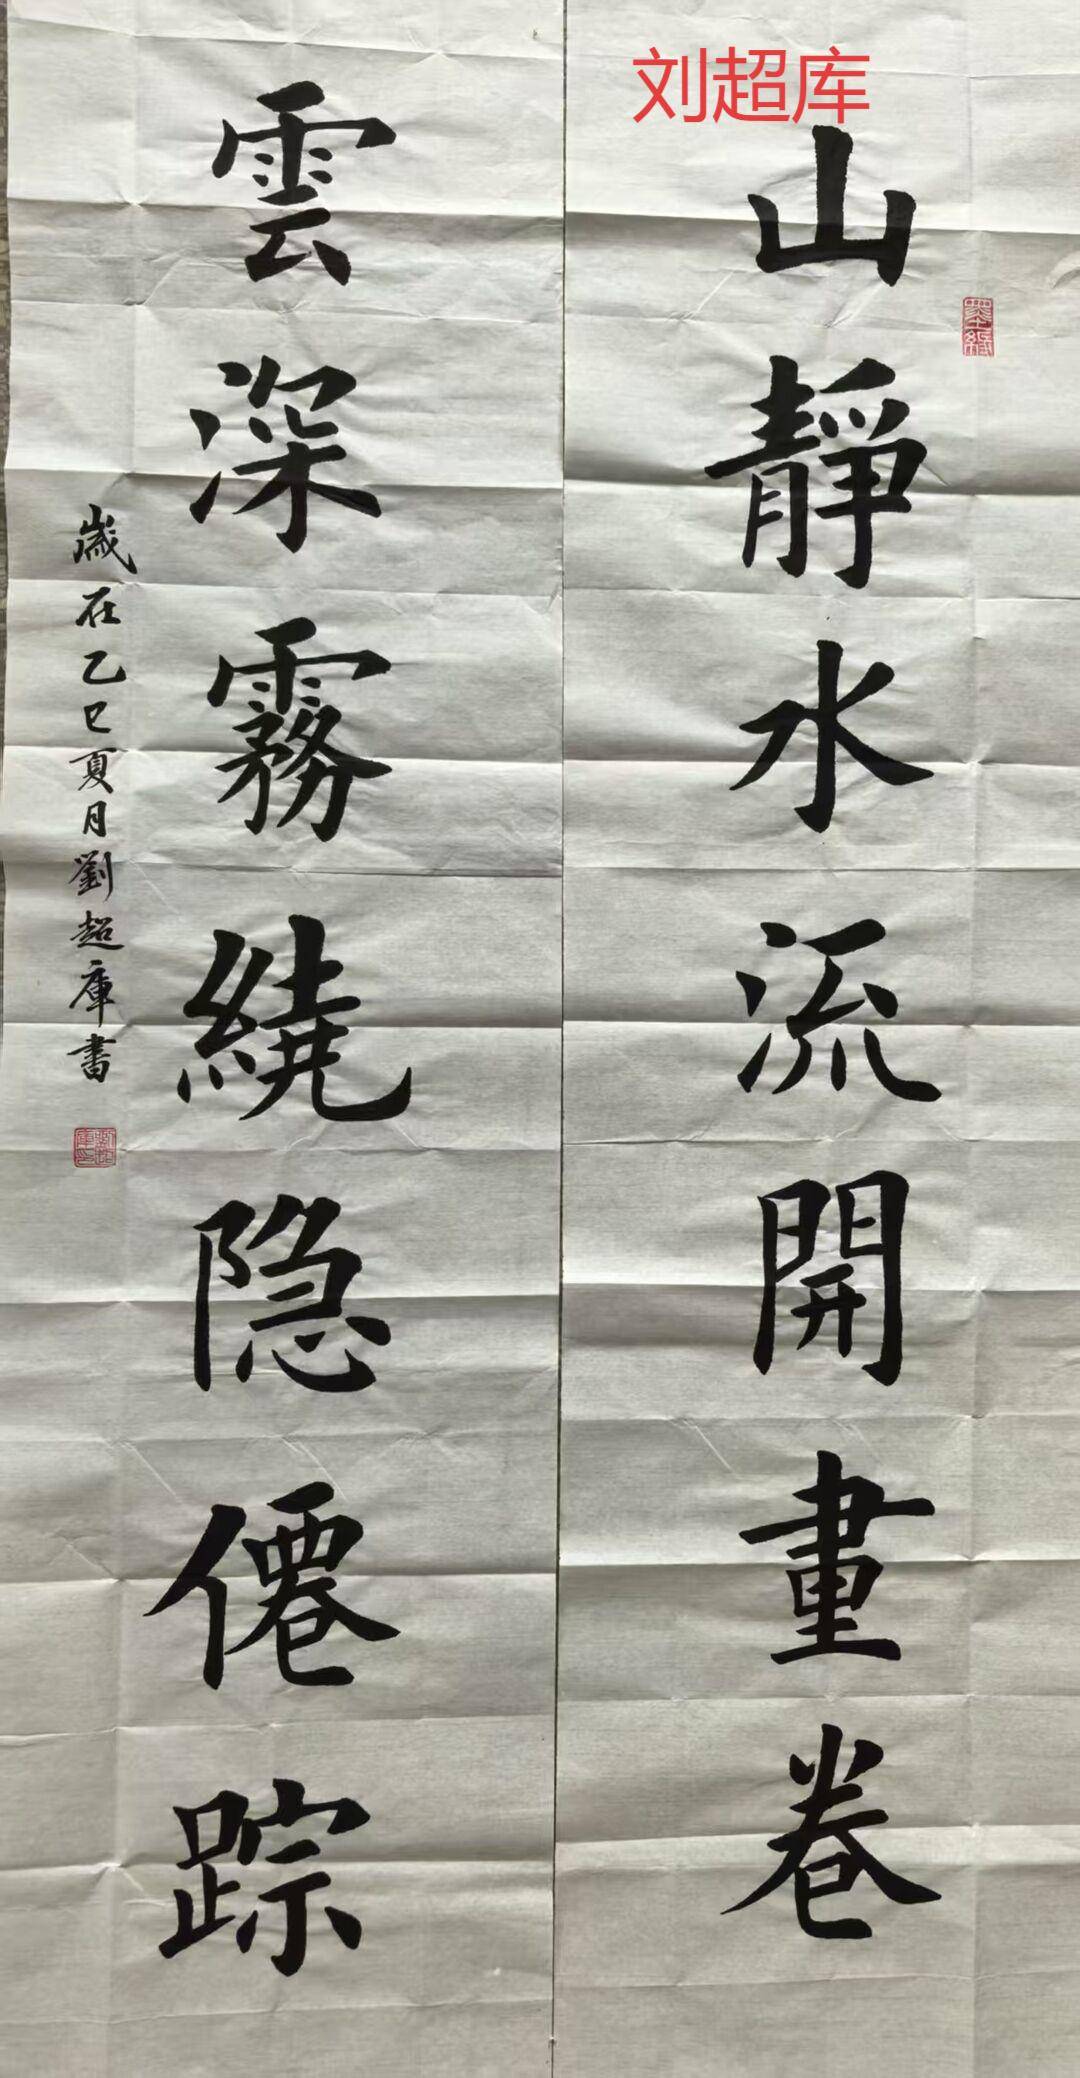 刘超库
山靜水流開畫卷
雲深霧繞隐僊踪
歲在乙巳夏月劉超庫書
墨缄